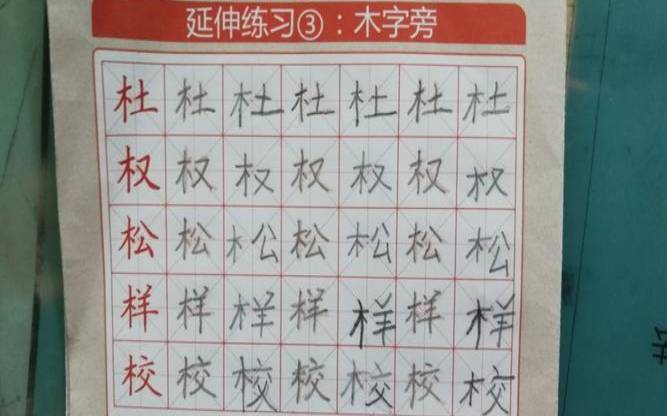 延伸练习③：木字旁
杜杜杜杜杜杜杜
权权权权权权权
松松松松松松松
样样样样样样样
校校校校校校校